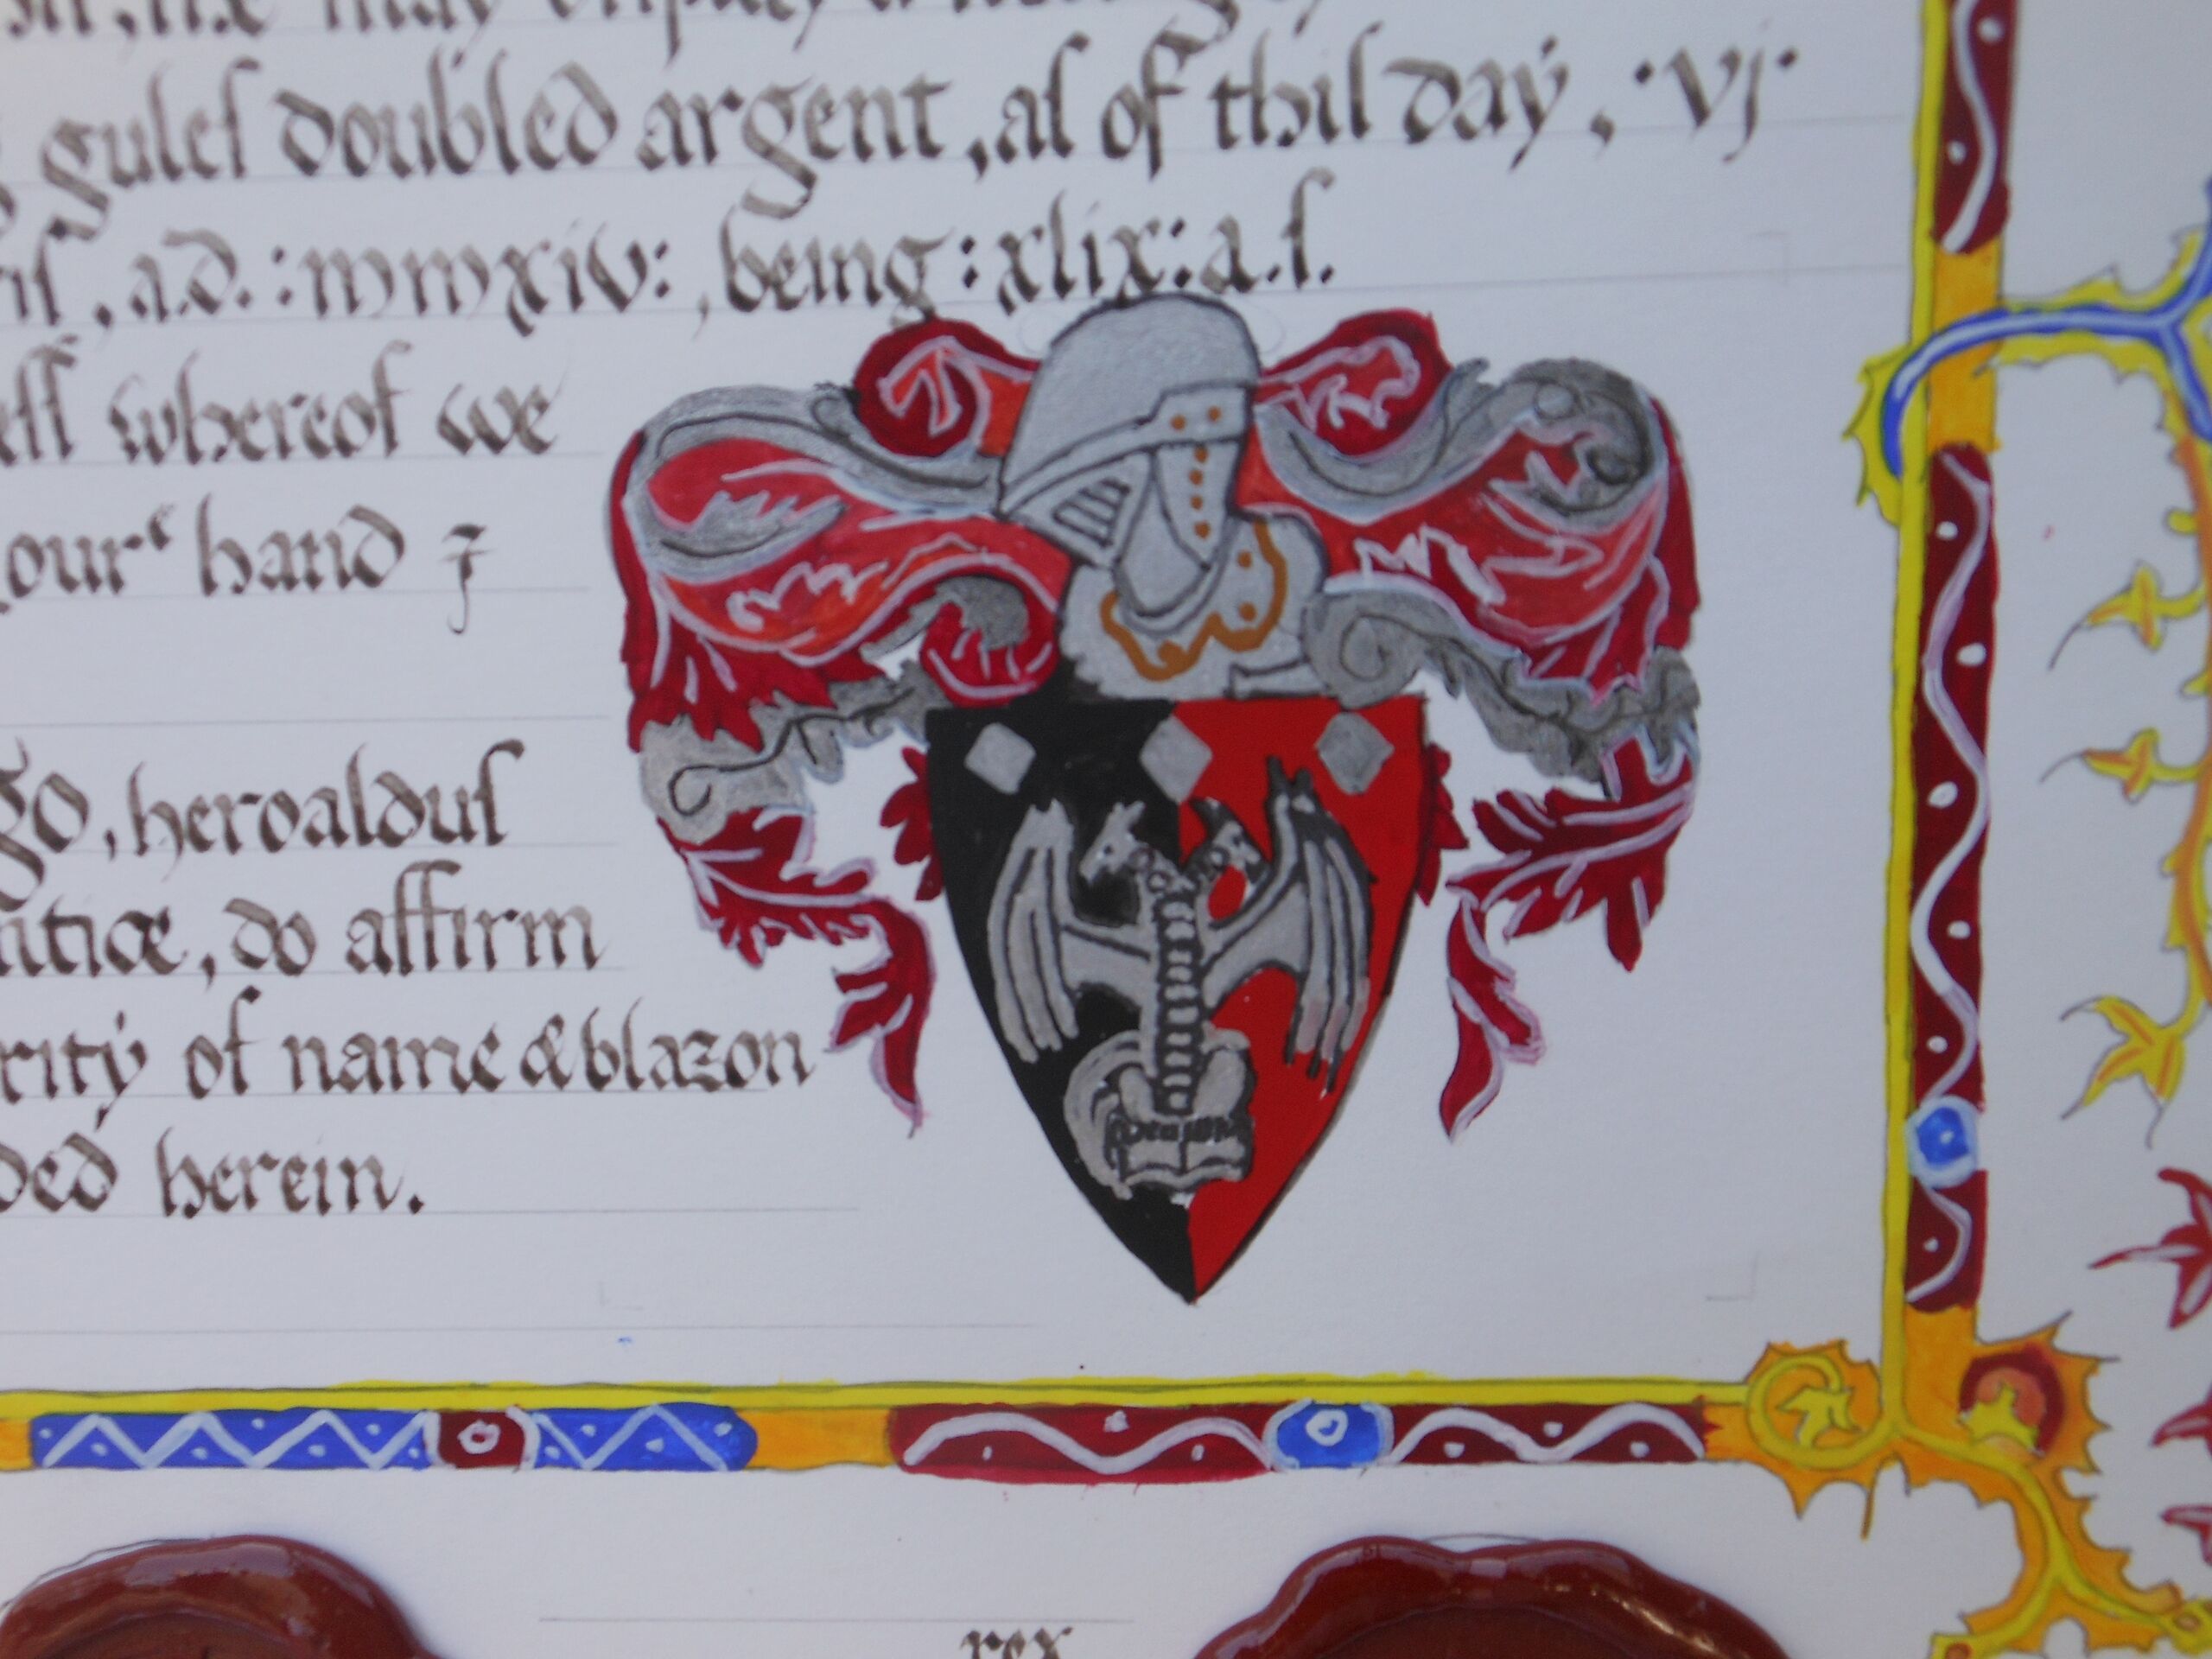 may display a
gules doubled argent, as of this day, ·vj·
, a.d. :mmxiv: , being :xlix: a.s.
whereof we
our hand
go, heroaldus
, do affirm
of name & blazon
herein.
rex